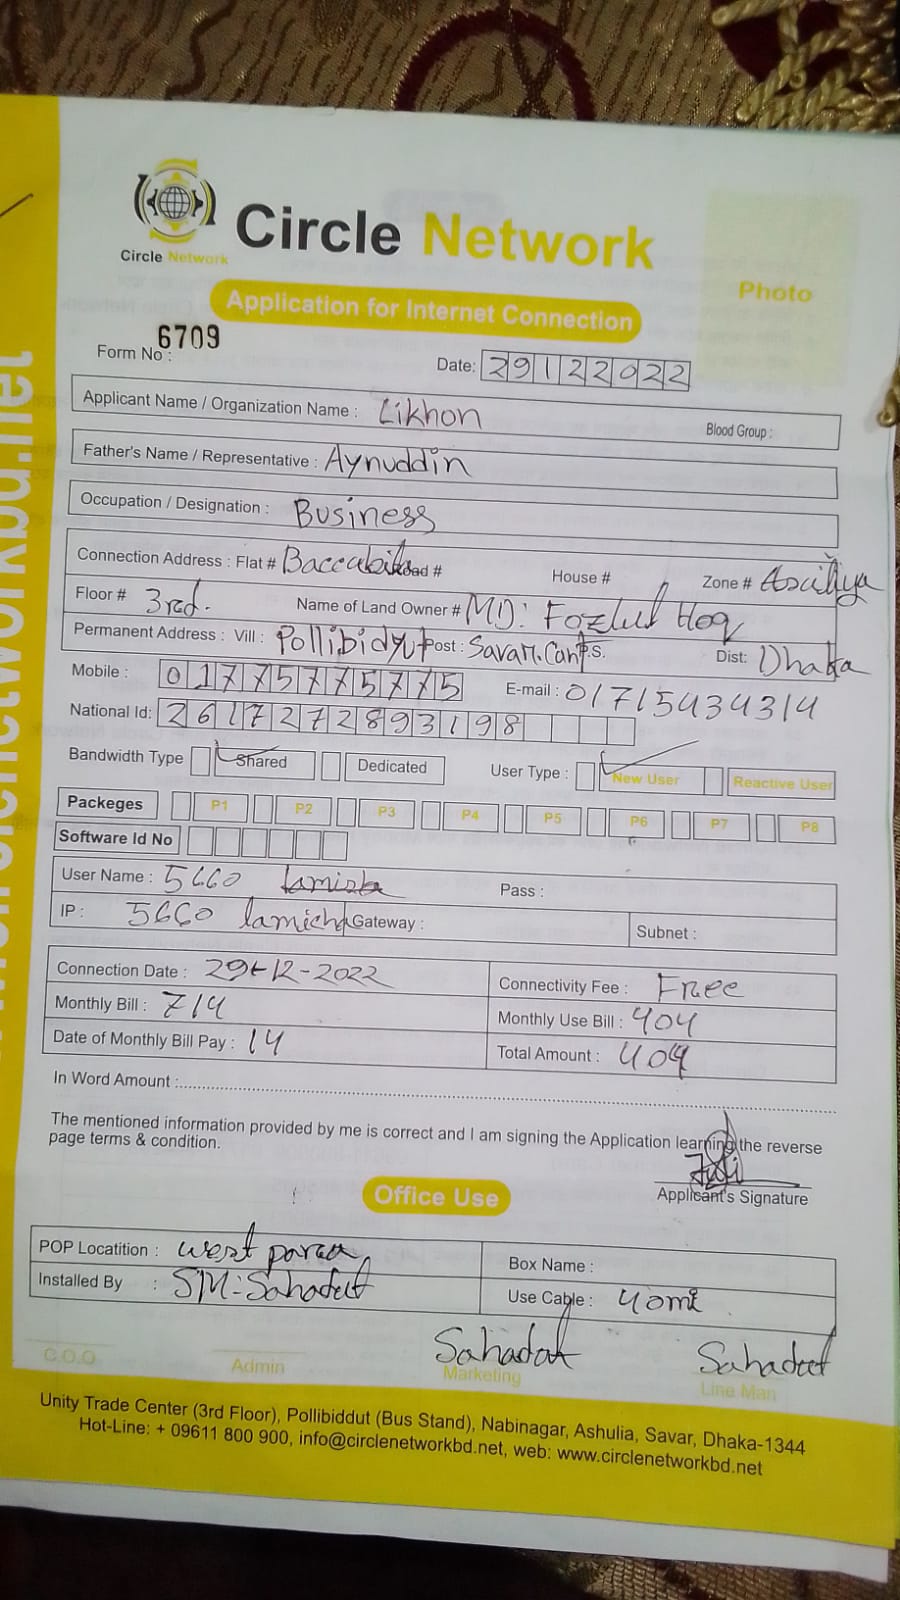 Circle Network
Circle Network
Photo
Application for Internet Connection
Form No : 6709
Date: 29122022
Applicant Name / Organization Name : Likhon Blood Group :
Father's Name / Representative : Aynuddin
Occupation / Designation : Business
Connection Address : Flat # House # Zone #
Floor # 3rd. Name of Land Owner # MD: Fozlul Hoq
Permanent Address : Vill : Pollibidyut Post : Savar. Cant P.S. Dist: Dhaka
Mobile : 01775775775 E-mail : 01715434314
National Id: 2617272893198
Bandwidth Type Shared Dedicated User Type : New User Reactive User
Packeges P1 P2 P3 P4 P5 P6 P7 P8
Software Id No
User Name : 5660 Pass :
IP : 5660 lamicha Gateway : Subnet :
Connection Date : 29-12-2022 Connectivity Fee : Free
Monthly Bill : 714 Monthly Use Bill : 404
Date of Monthly Bill Pay : 14 Total Amount : 404
In Word Amount :
The mentioned information provided by me is correct and I am signing the Application learning the reverse
page terms & condition.
Applicant's Signature
Office Use
POP Locatition : west para Box Name :
Installed By : SM: Sahadat Use Cable : 40mt
Sahadat Sahadat
C.O.O Admin Marketing Line Man
Unity Trade Center (3rd Floor), Pollibiddut (Bus Stand), Nabinagar, Ashulia, Savar, Dhaka-1344
Hot-Line: + 09611 800 900, info@circlenetworkbd.net, web: www.circlenetworkbd.net